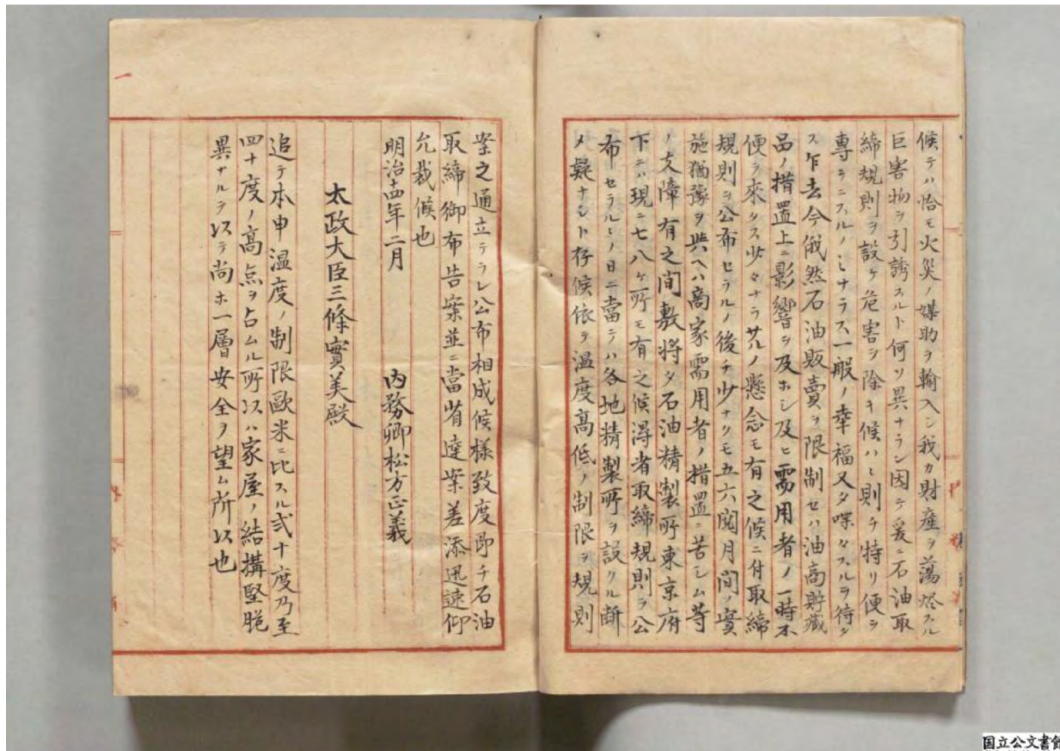 候テハ恰モ火災ノ媒助ヲ輸入シ我カ財産ヲ蕩燼スル
巨害物ヲ引誘スルト何ソ異ナラン因テ爰ニ石油取
締規則ヲ設ケ危害ヲ除キ候ハヽ則チ特リ便ヲ
専ラニスルノミナラス一般ノ幸福又タ喋々スルヲ待タ
ス乍去今俄然石油販賣ヲ限制セハ油商貯蔵
品ノ措置上ニ影響ヲ及ホシ及ヒ需用者ノ一時不
便ヲ來タス少々ナラサルノ懸念モ有之候ニ付取締
規則ヲ公布セラルノ後チ少ナクモ五六閲月間ノ實
施猶豫ヲ與ヘハ商家需用者ノ措置ニ苦シム等
ノ支障有之間敷将タ石油精製所東京府
下ニハ現ニ七八ヶ所モ有之候得者取締規則ヲ公
布セラルヽノ日ニ當テハ各地精製所ヲ設クル断
メ疑ナシト存候依テ温度高低ノ制限ヲ規則
案之通立テラレ公布相成候様致度即チ石油
取締御布告案並ニ當省達案差添迅速仰
允裁候也
明治十四年二月
内務卿松方正義
太政大臣三條實美殿
追テ本申温度ノ制限歐米ニ比スル弐十度乃至
四十度ノ高点ヲ占ムル所以ハ家屋ノ結構堅脆
異ナルヲ以テ尚ホ一層安全ヲ望ム所以也
国立公文書館